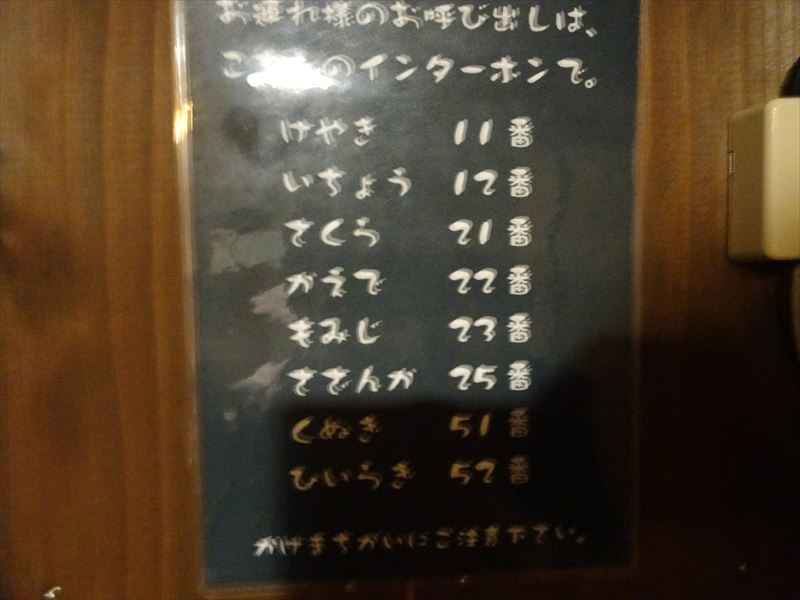 お連れ様のお呼び出しは、
こ のインターホンで。
けやき 11番
いちょう 12番
さくら 21番
かえで 22番
もみじ 23番
さざんか 25番
くぬぎ 51番
ひいらぎ 52番
かけまちがいにご注意下さい。